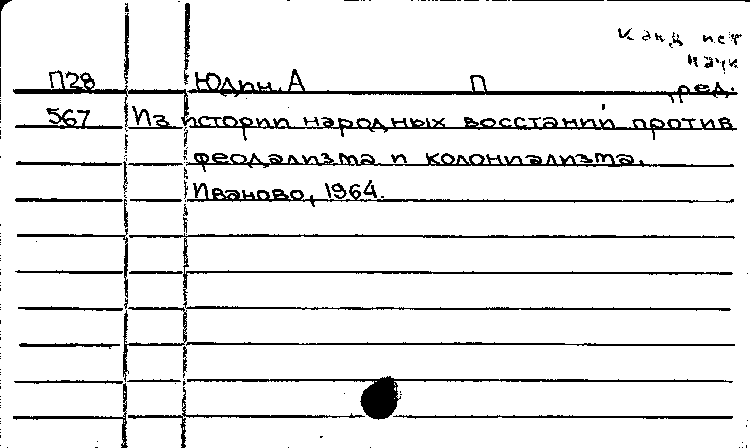 канд ист
наук
П28 Юдин, А П ,ред.
567 Из истории народных восстаний против
феодализма и колониализма.
Иваново, 1964.